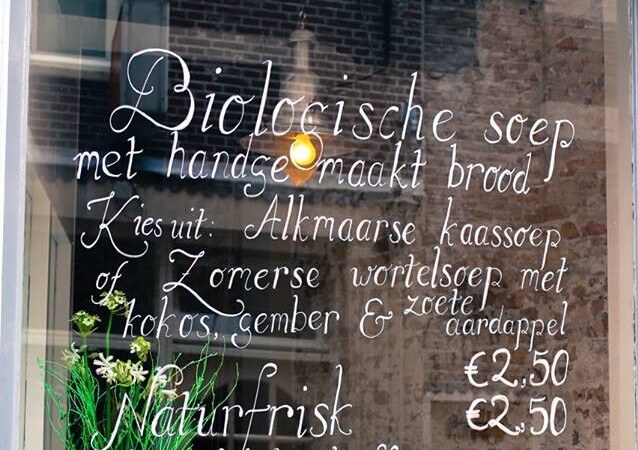 Biologische soep
met handgemaakt brood
Kies uit: Alkmaarse kaassoep
of Zomerse wortelsoep met
kokos, gember & zoete aardappel
€2,50
Naturfrisk €2,50